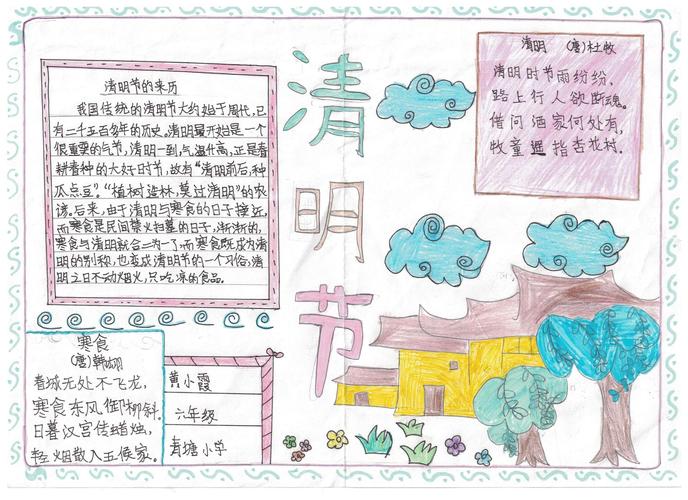 清明节的来历
我国传统的清明节大约始于周代,已
有二千五百多年的历史,清明最开始是一个
很重要的节气,清明一到,气温升高,正是春
耕春种的大好日节,故有“清明前后,种
瓜点豆”。“植树造林,莫过清明”的农
谚。后来,由于清明与寒食的日子接近,
而寒食是民间禁火扫墓的日子,渐渐的,
寒食与清明就合二为一了,而寒食既成为清
明的别称,也变成清明节的一个习俗,清
明之日不动烟火,只吃凉的食品。
清明节
清明 (唐)杜牧
清明时节雨纷纷,
路上行人欲断魂。
借问酒家何处有,
牧童遥指杏花村.
寒食
(唐)韩翃
春城无处不飞龙,
寒食东风御柳斜.
日暮汉宫传蜡烛,
轻烟散入五候家.
黄小霞
六年级
青塘小学